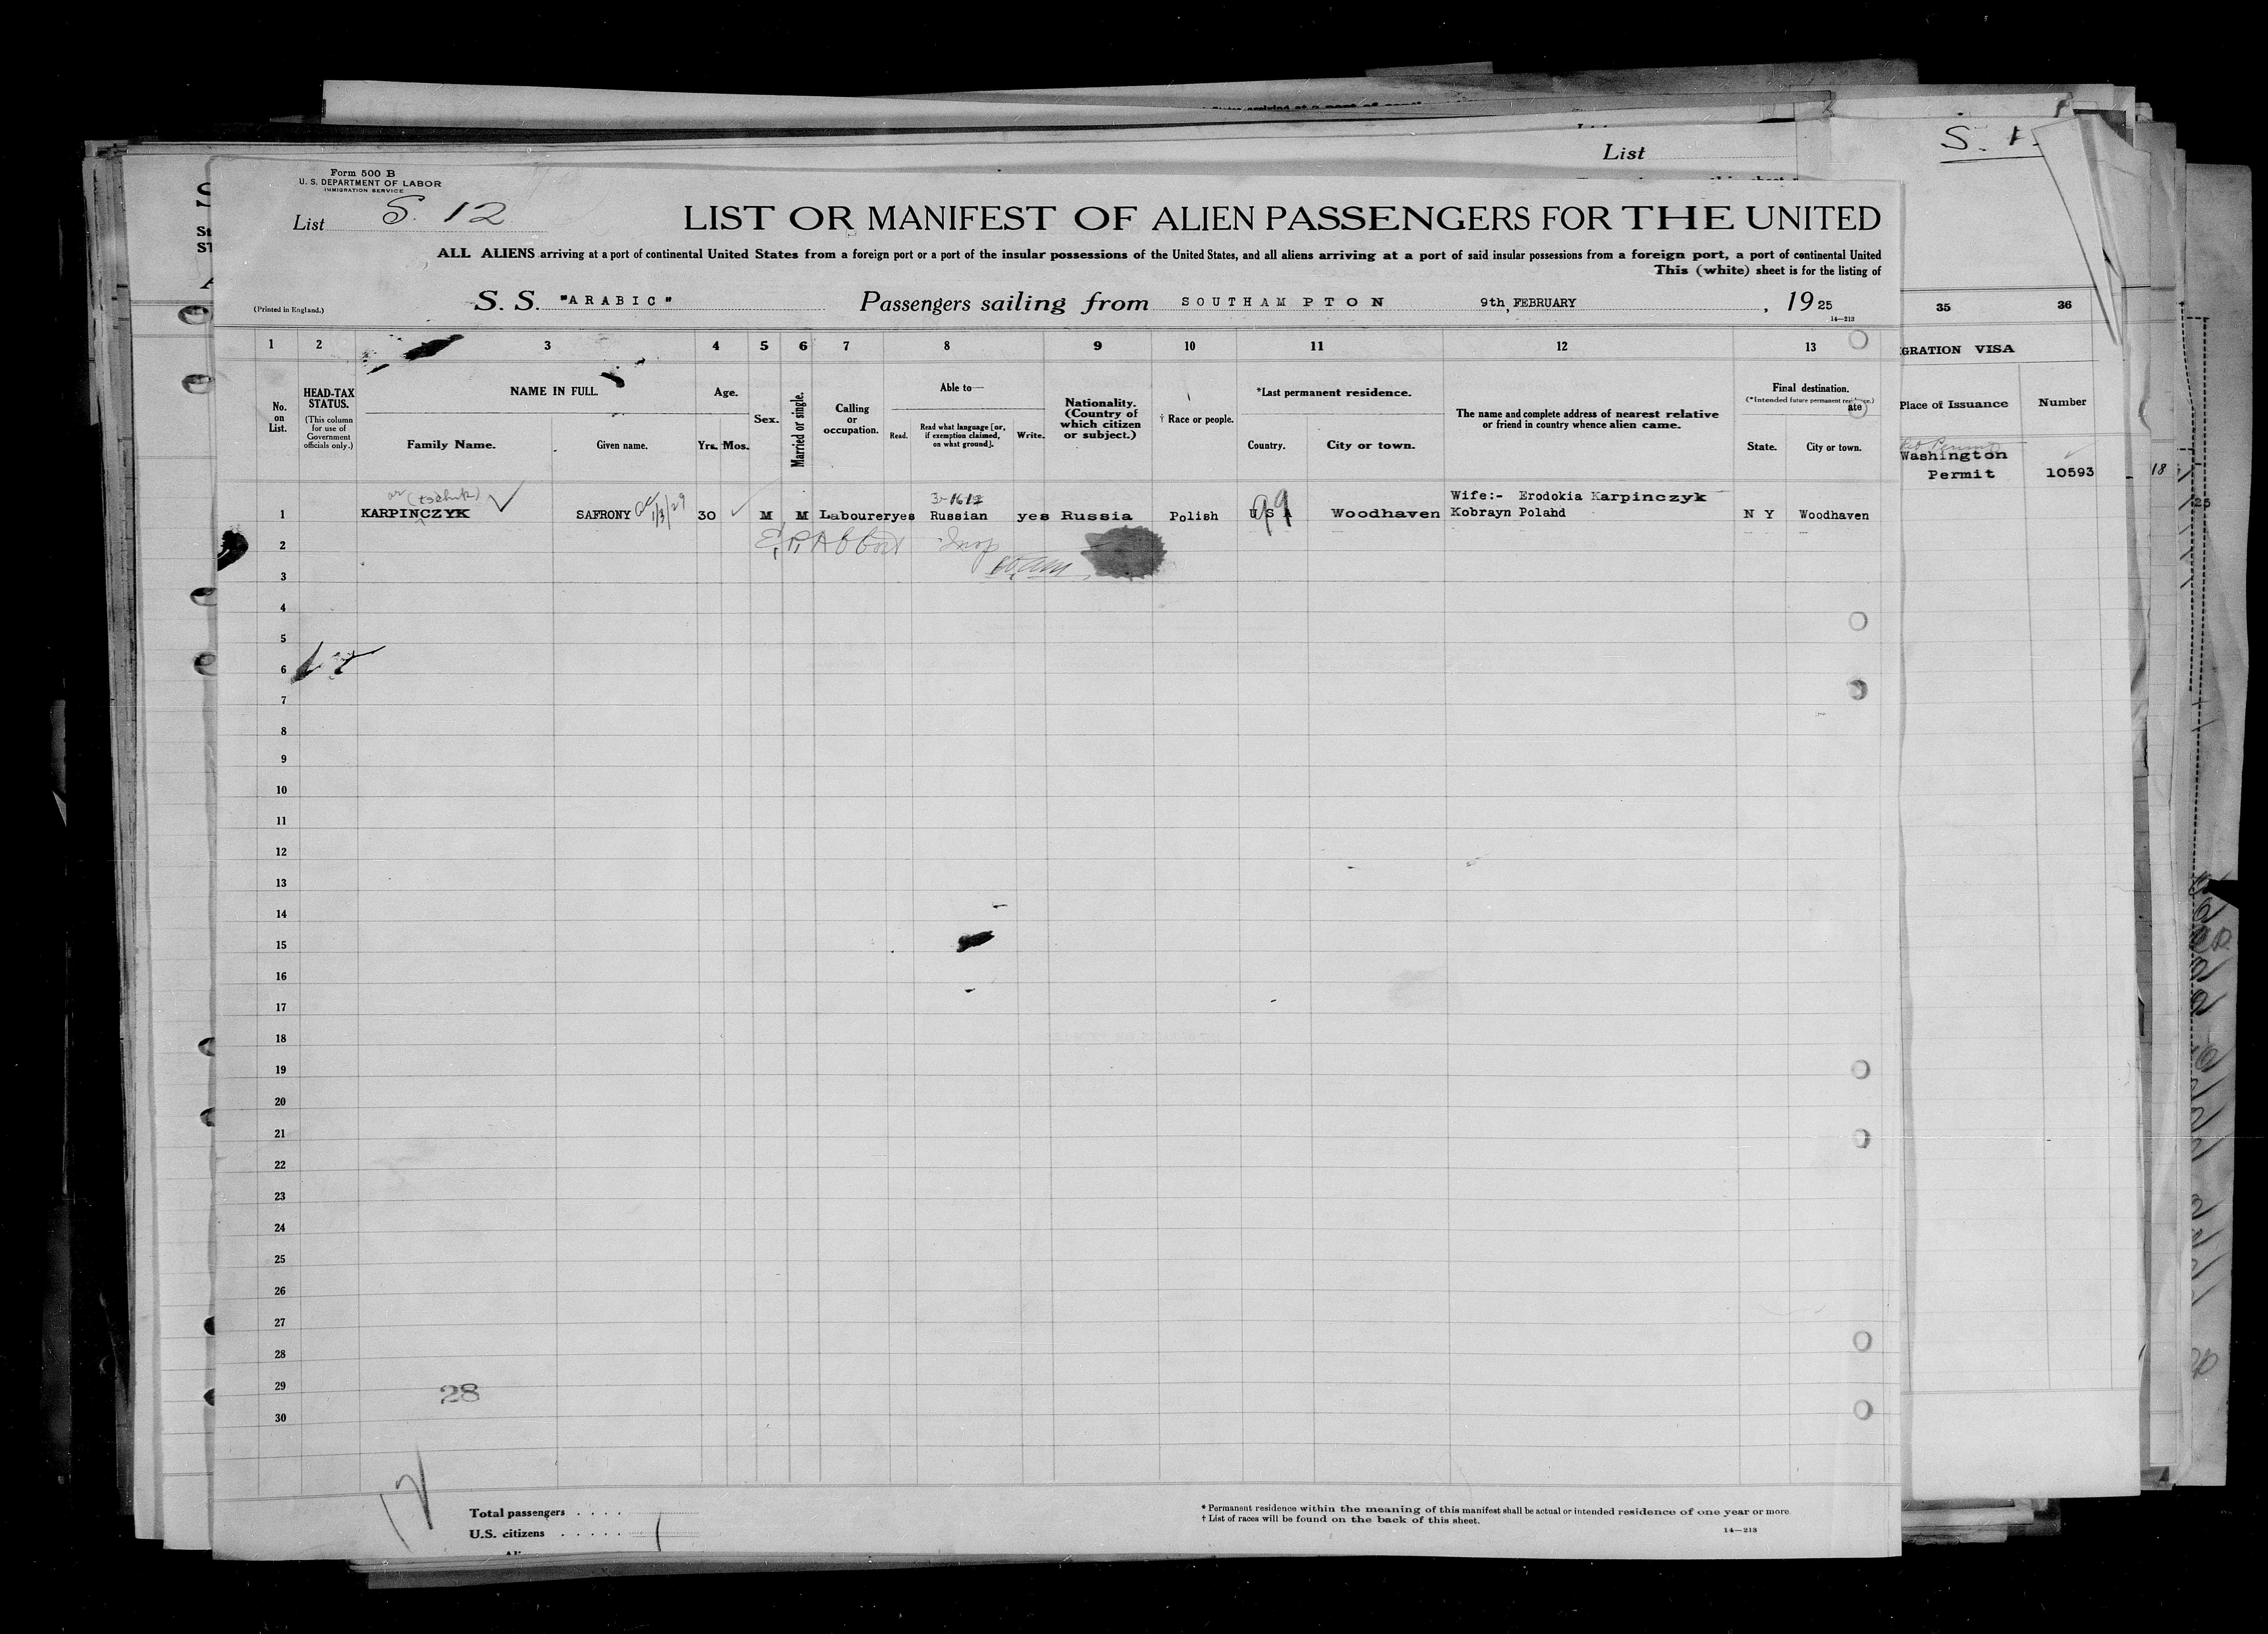 List
S. 1
Form 500 B
U. S. DEPARTMENT OF LABOR
IMMIGRATION SERVICE
List S. 12
LIST OR MANIFEST OF ALIEN PASSENGERS FOR THE UNITED
ALL ALIENS arriving at a port of continental United States from a foreign port or a port of the insular possessions of the United States, and all aliens arriving at a port of said insular possessions from a foreign port, a port of continental United
This (white) sheet is for the listing of
(Printed in England.)
S. S. "ARABIC" Passengers sailing from SOUTHAMPTON 9th, FEBRUARY, 1925
14—213
1 2 3 4 5 6 7 8 9 10 11 12 13 35 36
GRATION VISA
No. on List.
HEAD-TAX STATUS.
(This column for use of Government officials only.)
NAME IN FULL.
Family Name. Given name.
Age.
Yrs. Mos.
Sex.
Married or single.
Calling or occupation.
Able to—
Read.
Read what language [or, if exemption claimed, on what ground].
Write.
Nationality. (Country of which citizen or subject.)
† Race or people.
*Last permanent residence.
Country. City or town.
The name and complete address of nearest relative or friend in country whence alien came.
Final destination.
(*Intended future permanent residence.)
ate
State. City or town.
Place of Issuance Number
Washington
Permit 10593
18
25
or (tschuk)
3-1612
1/3/29
1 KARPINCZYK SAFRONY 30 M M Labourer yes Russian yes Russia Polish U S A 99 Woodhaven Wife:- Erodokia Karpinczyk
Kobrayn Poland N Y Woodhaven
E. P. Abbott Insp
2
3
4
5
6
7
8
9
10
11
12
13
14
15
16
17
18
19
20
21
22
23
24
25
26
27
28
29
28
30
12
Total passengers . . . .
U.S. citizens . . . . . 1
* Permanent residence within the meaning of this manifest shall be actual or intended residence of one year or more
† List of races will be found on the back of this sheet.
14—213